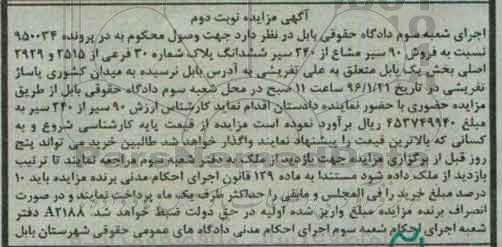 آگهی مزایده نوبت دوم
اجرای شعبه سوم دادگاه حقوقی بابل در نظر دارد جهت وصول محکوم به در پرونده ۹۵۰۰۳۴
نسبت به فروش ۹۰ سیر مشاع از ۲۴۰ سیر ششدانگ پلاک شماره ۳۰ فرعی از ۳۵۱۵ و ۲۹۲۹
اصلی بخش یک بابل متعلق به علی تفریشی به آدرس بابل نرسیده به میدان کشوری پاساژ
تفریشی در تاریخ ۹۶/۱/۲۱ ساعت ۱۱ صبح در محل شعبه سوم دادگاه حقوقی بابل از طریق
مزایده حضوری با حضور نماینده دادستان اقدام نماید کارشناس ارزش ۹۰ سیر از ۲۴۰ سیر به
مبلغ ۶۵۳۷۴۹۹۴۰ ریال برآورد نموده است مزایده از قیمت پایه کارشناسی شروع و به
کسانی که بالاترین قیمت را پیشنهاد نمایند واگذار خواهد شد طالبین خرید می تواند پنج
روز قبل از برگزاری مزایده جهت بازدید از ملک به دفتر شعبه سوم مراجعه نمایند تا ترتیب
بازدید از ملک داده شود مستندا به ماده ۱۲۹ قانون اجرای احکام مدنی برنده مزایده باید ۱۰
درصد مبلغ خرید را فی المجلس و مابقی را حداکثر ظرف یک ماه پرداخت نمایند و در صورت
انصراف برنده مزایده مبلغ واریز شده اولیه در حق دولت ضبط خواهد شد. A۲۱۸۸ دفتر
شعبه اجرای احکام شعبه سوم اجرای احکام مدنی دادگاه های عمومی حقوقی شهرستان بابل